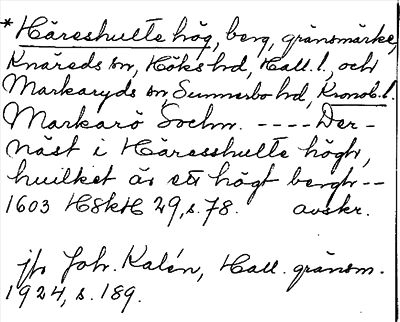 *Häreshulte hög, berg, gränsmärke,
Knäreds sn, Höks hd, Hall. l., och
Markaryds sn, Sunnerbo hd, Kronob. l.
Markarö Sochn. ---- Der-
näst i Häresshulte högh,
huilket är ett högt bergh--
1603 HSkH 29, s. 78. avskr.
jfr Joh. Kalén, Hall. gränsm.
1924, s. 189.